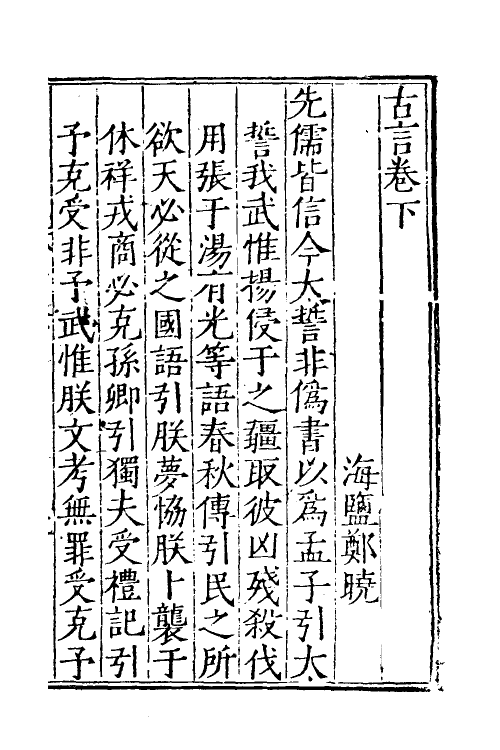 古言卷下
海鹽鄭曉
先儒皆信今太誓非偽書以為孟子引太
誓我武惟揚侵于之疆取彼凶殘殺伐
用張于湯有光等語春秋傳引民之所
欲天必從之國語引朕夢恊朕卜襲于
休祥戎商必克孫卿引獨夫受禮記引
予克受非予武惟朕文考無罪受克予